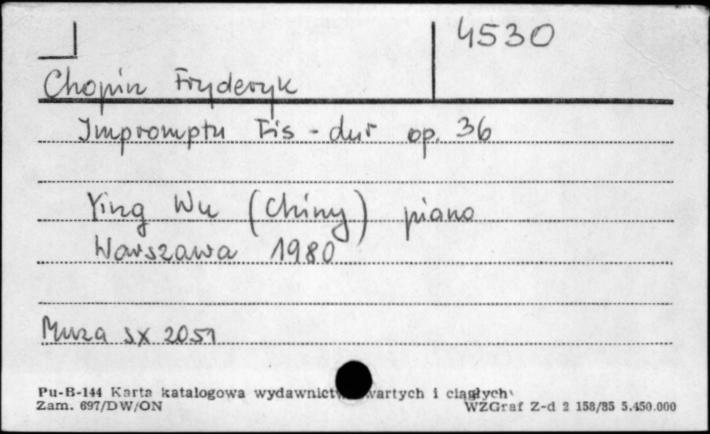 4530
Chopin Fryderyk
Impromptu Fis-dur op. 36
Ying Wu (Chiny) piano
Warszawa 1980
Muza SX 2051
Pu-B-144 Karta katalogowa wydawnictw zwartych i ciągłych
Zam. 697/DW/ON
WZGraf Z-d 2 158/85 5.450.000